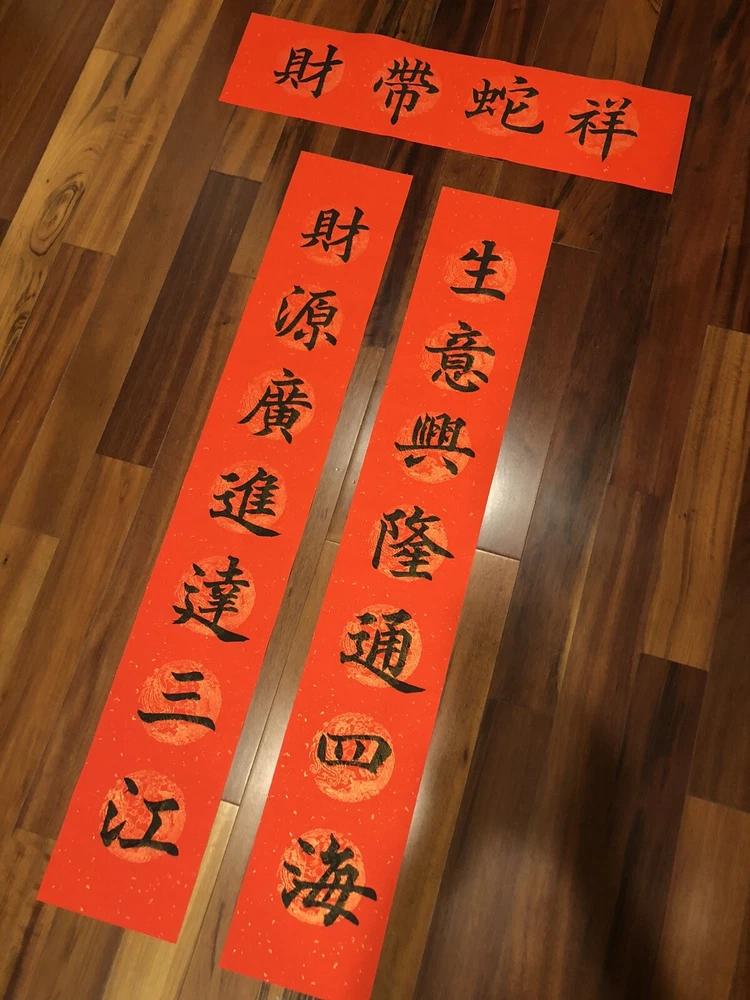 祥蛇帶財
生意興隆通四海
財源廣進達三江